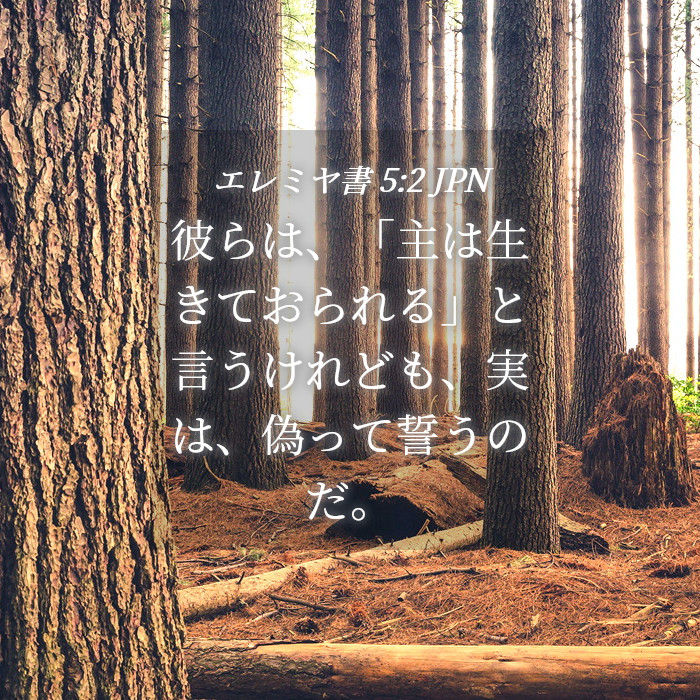 エレミヤ書 5:2 JPN
彼らは、「主は生
きておられる」と
言うけれども、実
は、偽って誓うの
だ。